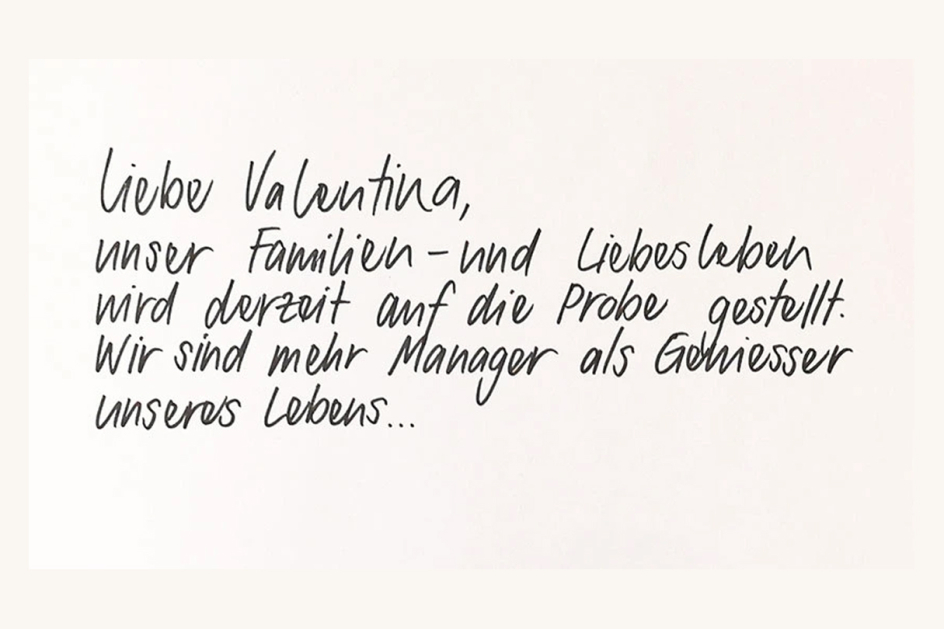 Liebe Valentina,
unser Familien- und Liebesleben
wird derzeit auf die Probe gestellt.
Wir sind mehr Manager als Geniesser
unseres Lebens...